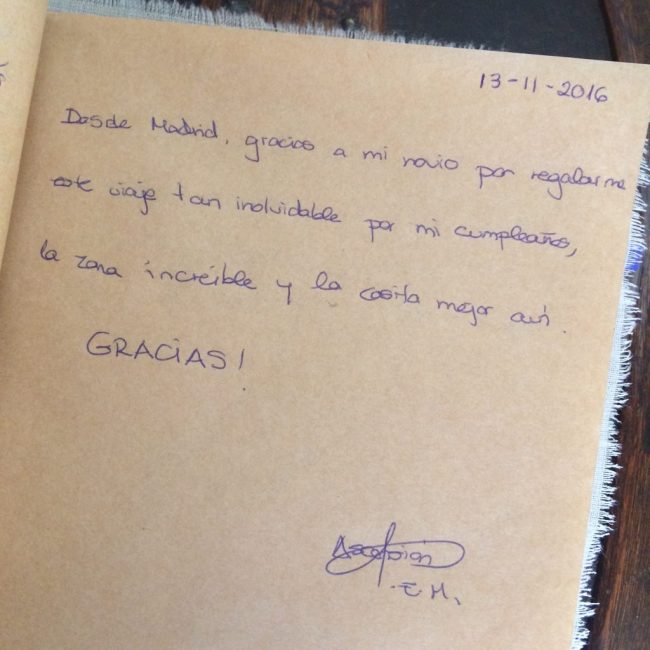 13-11-2016
Desde Madrid, gracias a mi novio por regalarme
este viaje tan inolvidable por mi cumpleaños,
la zona increíble y la casita mejor aún.
GRACIAS!
Ascensión
E M.